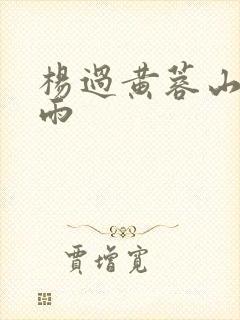 楊過黃蓉山
雨
賈增寬